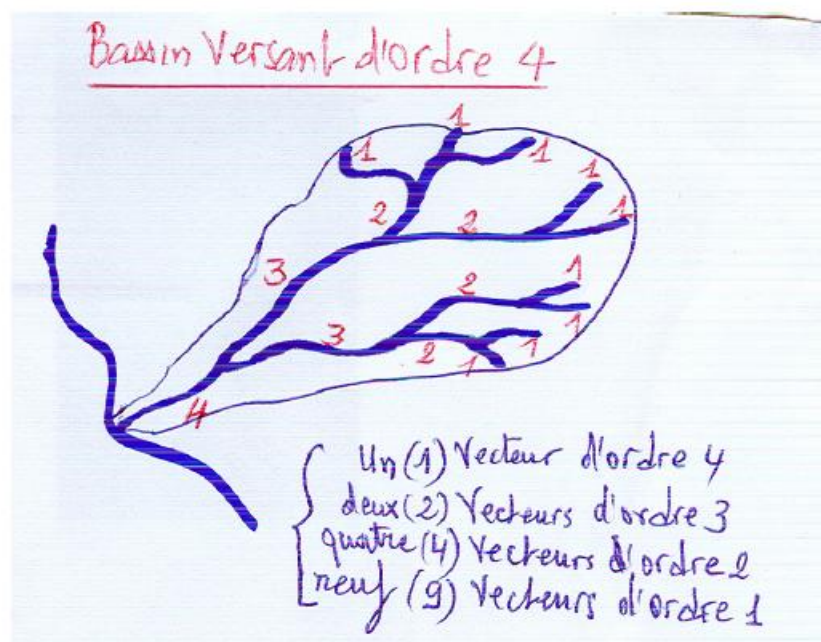 Bassin Versant d'Ordre 4
1
1
1
1
2
2
1
3
1
2
3
1
2
1
1
4
Un (1) Vecteur d'ordre 4
deux (2) Vecteurs d'ordre 3
quatre (4) Vecteurs d'ordre 2
neuf (9) Vecteurs d'ordre 1